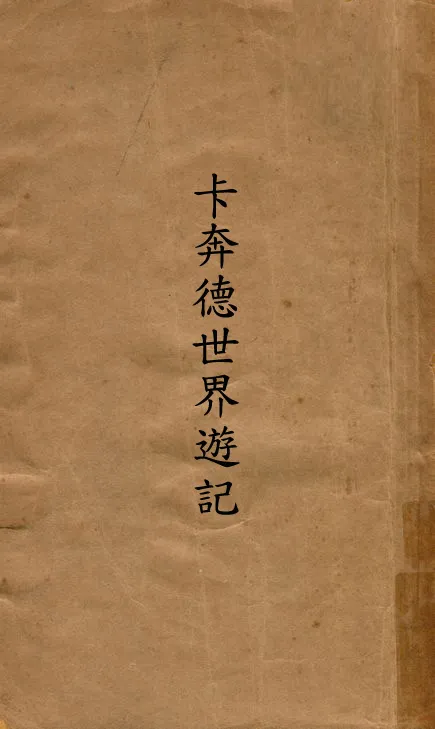 卡奔德世界遊記